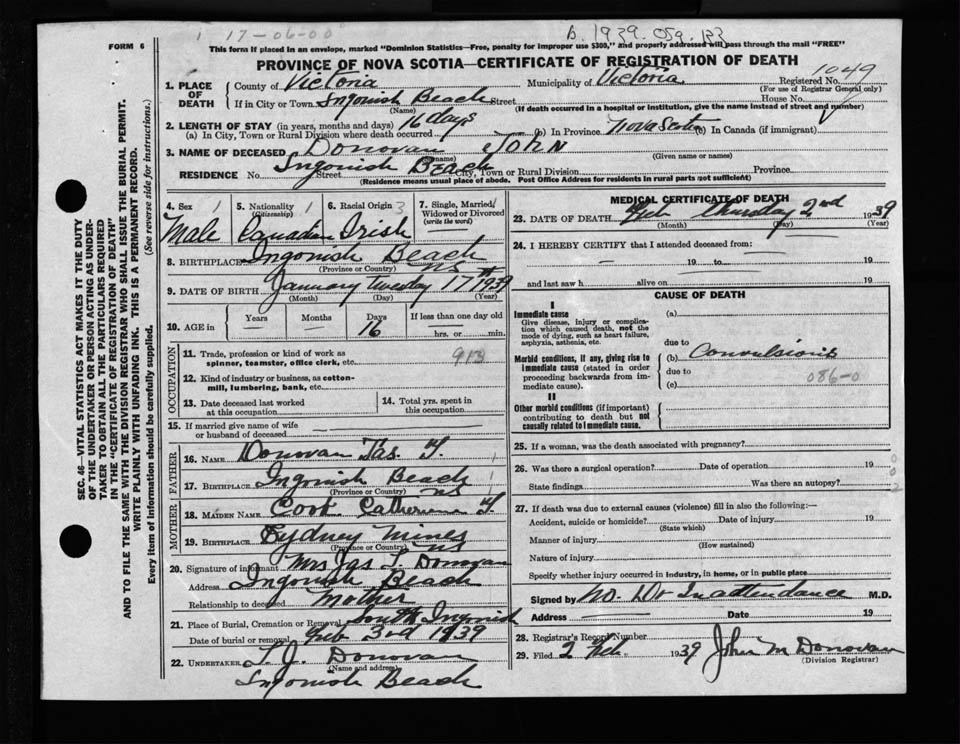 1 17-06-00
B. 1939. 059. 122
FORM 6
This form if placed in an envelope, marked "Dominion Statistics—Free, penalty for improper use $300," and properly addressed will pass through the mail "FREE"
PROVINCE OF NOVA SCOTIA—CERTIFICATE OF REGISTRATION OF DEATH
1. PLACE OF DEATH County of Victoria Municipality of Victoria Registered No. 1049
(For use of Registrar General only)
If in City or Town Ingonish Beach Street House No.
(Name) (If death occurred in a hospital or institution, give the name instead of street and number)
2. LENGTH OF STAY (in years, months and days) 16 days
(a) In City, Town or Rural Division where death occurred (b) In Province Nova Scotia (c) In Canada (if immigrant)
3. NAME OF DECEASED Donovan John
(Surname) (Given name or names)
RESIDENCE No. Ingonish Beach Street City, Town or Rural Division Province
(Residence means usual place of abode. Post Office Address for residents in rural parts not sufficient)
4. Sex 1 Male
5. Nationality 1 (Citizenship) Canadian
6. Racial Origin 3 Irish
7. Single, Married, Widowed or Divorced (write the word)
8. BIRTHPLACE Ingonish Beach NS
(Province or Country)
9. DATE OF BIRTH January Tuesday 17th 1939
(Month) (Day) (Year)
10. AGE in Years Months Days 16 If less than one day old hrs. or min.
OCCUPATION
11. Trade, profession or kind of work as spinner, teamster, office clerk, etc. 910
12. Kind of industry or business, as cotton-mill, lumbering, bank, etc.
13. Date deceased last worked at this occupation
14. Total yrs. spent in this occupation
15. If married give name of wife or husband of deceased
FATHER
16. NAME Donovan Jas. F. 1
17. BIRTHPLACE Ingonish Beach NS 1
(Province or Country)
MOTHER
18. MAIDEN NAME Cook Catherine F.
19. BIRTHPLACE Sydney Mines NS
(Province or Country)
20. Signature of informant Mrs Jas F. Donovan
Address Ingonish Beach
Relationship to deceased Mother
21. Place of Burial, Cremation or Removal South Ingonish
Date of burial or removal Feb 3rd 1939
22. UNDERTAKER T. J. Donovan
(Name and address)
Ingonish Beach
MEDICAL CERTIFICATE OF DEATH
23. DATE OF DEATH Feb Thursday 2nd 1939
(Month) (Day) (Year)
24. I HEREBY CERTIFY that I attended deceased from:
19 to 19
and last saw h alive on 19
CAUSE OF DEATH
I
Immediate cause (a)
Give disease, injury or complication which caused death, not the mode of dying, such as heart failure, asphyxia, asthenia, etc.
due to
Morbid conditions, if any, giving rise to immediate cause (stated in order proceeding backwards from immediate cause).
(b) Convulsions
due to
(c) 086-0
II
Other morbid conditions (if important) contributing to death but not causally related to immediate cause.
25. If a woman, was the death associated with pregnancy?
26. Was there a surgical operation? Date of operation 19 0
State findings Was there an autopsy? 0 2
27. If death was due to external causes (violence) fill in also the following:—
Accident, suicide or homicide? Date of injury 19
(State which)
Manner of injury
(How sustained)
Nature of injury
Specify whether injury occurred in industry, in home, or in public place
Signed by No. Dr In attendance M.D.
Address Date 19
28. Registrar's Record Number
29. Filed 2 Feb. 1939 John M Donovan
(Division Registrar)
SEC. 46—VITAL STATISTICS ACT MAKES IT THE DUTY
OF THE UNDERTAKER OR PERSON ACTING AS UNDER-
TAKER TO OBTAIN ALL THE PARTICULARS REQUIRED
IN THE "CERTIFICATE OF REGISTRATION OF DEATH"
AND TO FILE THE SAME WITH THE DIVISION REGISTRAR WHO SHALL ISSUE THE BURIAL PERMIT.
WRITE PLAINLY WITH UNFADING INK. THIS IS A PERMANENT RECORD.
Every item of information should be carefully supplied. (See reverse side for instructions.)